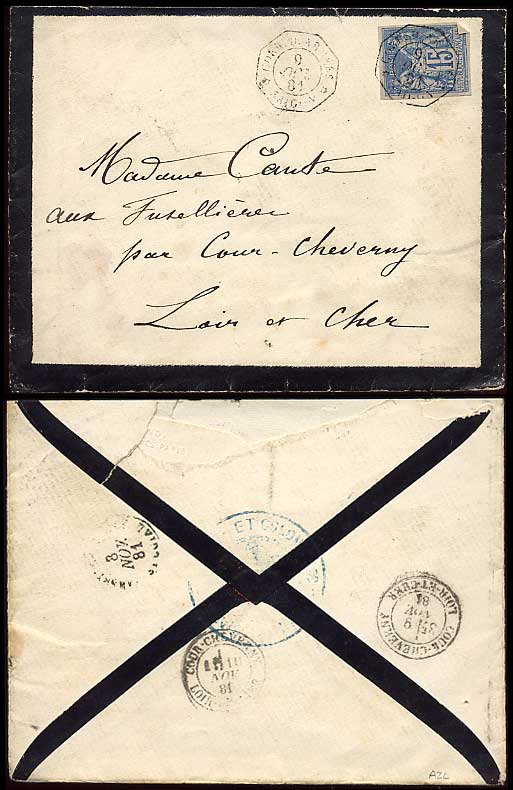 CORR. D. ARMÉES
9
81
15
Madame Cante
aux Fusellières
par Cour-Cheverny
Loir et Cher
ET COLO
8
NOV
81
COUR-CHEVERNY
9
NOV
81
LOIR-ET-CHER
COUR-CHEVERNY
10
NOV
81
LOIR
A2L